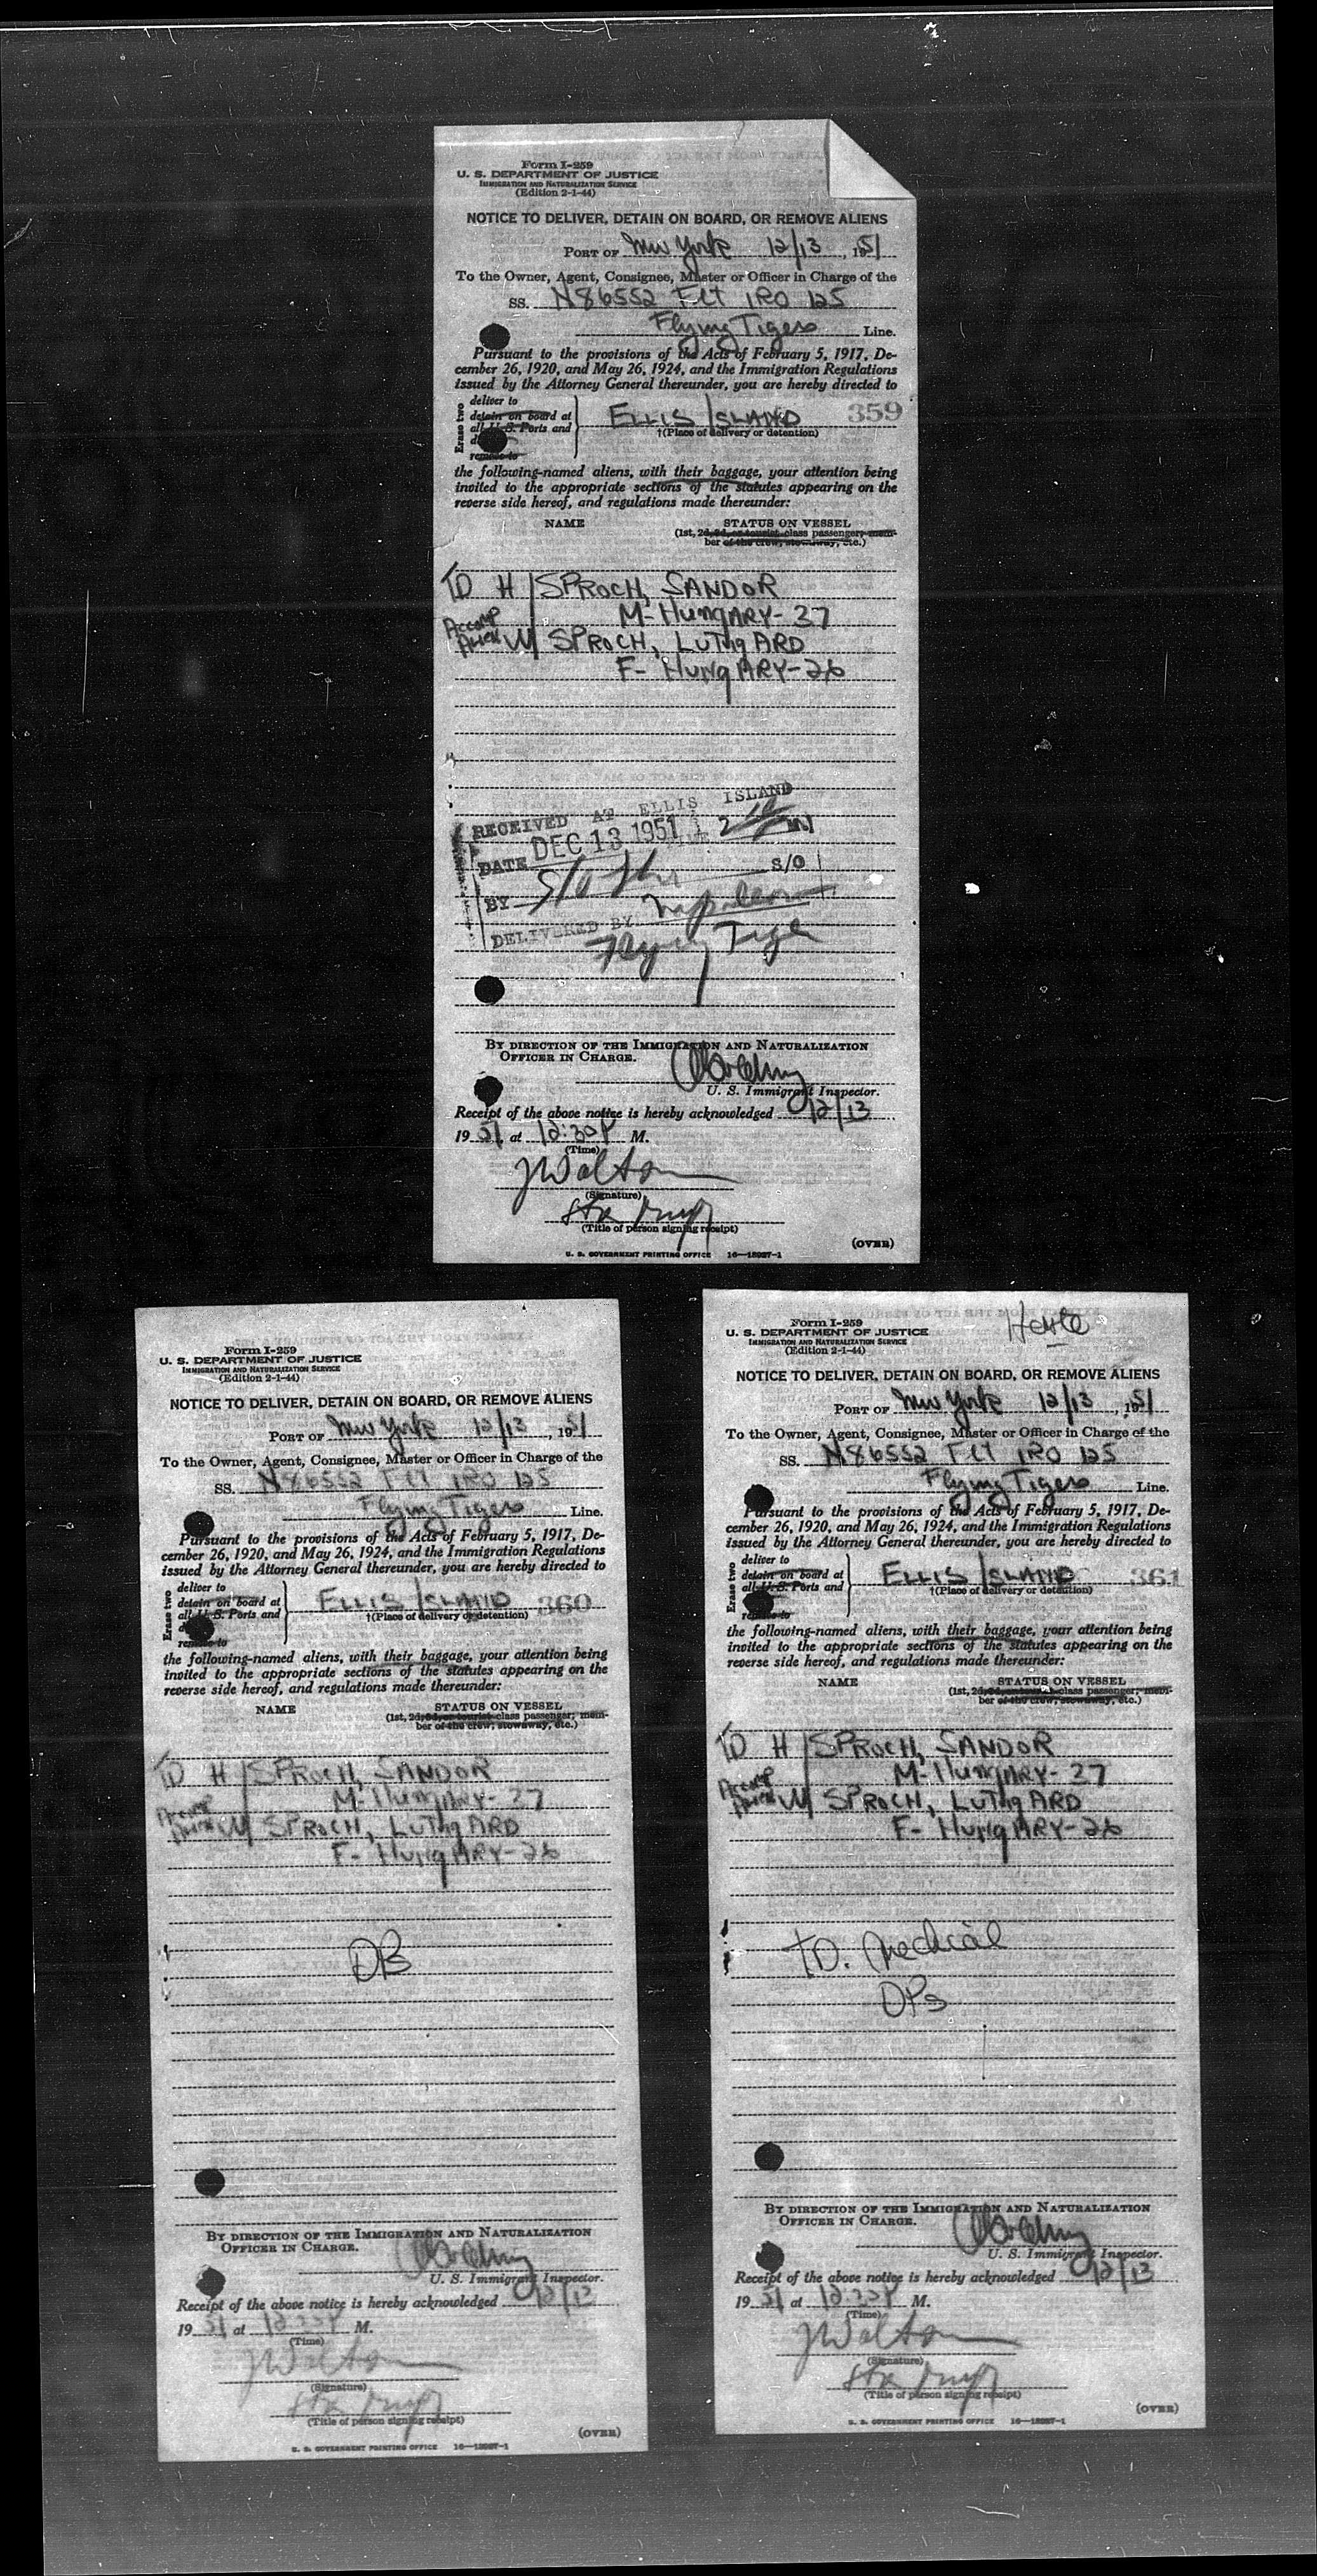 Form I-259
U. S. DEPARTMENT OF JUSTICE
IMMIGRATION AND NATURALIZATION SERVICE
(Edition 2-1-44)
NOTICE TO DELIVER, DETAIN ON BOARD, OR REMOVE ALIENS
PORT OF New York 12/13, 1951
To the Owner, Agent, Consignee, Master or Officer in Charge of the
SS. N86552 FLT IRO 125
Flying Tigers Line.
Pursuant to the provisions of the Acts of February 5, 1917, De-
cember 26, 1920, and May 26, 1924, and the Immigration Regulations
issued by the Attorney General thereunder, you are hereby directed to
Erase two
deliver to
detain on board at
all U.S. Ports and
remove to
ELLIS ISLAND 359
†(Place of delivery or detention)
the following-named aliens, with their baggage, your attention being
invited to the appropriate sections of the statutes appearing on the
reverse side hereof, and regulations made thereunder:
NAME STATUS ON VESSEL
(1st, 2d, 3d, or tourist-class passenger; mem-
ber of the crew, stowaway, etc.)
TD H SPROCH, SANDOR
M-HungARY-37
Accomp Alien W SPROCH, LUThgARD
F-HungARY-26
RECEIVED AT ELLIS ISLAND
DATE DEC 13 1951
BY S/O
DELIVERED BY
Flying Tiger
BY DIRECTION OF THE IMMIGRATION AND NATURALIZATION
OFFICER IN CHARGE.
U. S. Immigrant Inspector.
Receipt of the above notice is hereby acknowledged 12/13
1951 at 12:30P M.
(Time)
JWalton
(Signature)
(Title of person signing receipt)
(OVER)
U. S. GOVERNMENT PRINTING OFFICE 16-13927-1
Form I-259
U. S. DEPARTMENT OF JUSTICE
IMMIGRATION AND NATURALIZATION SERVICE
(Edition 2-1-44)
NOTICE TO DELIVER, DETAIN ON BOARD, OR REMOVE ALIENS
PORT OF New York 12/13, 1951
To the Owner, Agent, Consignee, Master or Officer in Charge of the
SS. N86552 FLT IRO 125
Flying Tigers Line.
Pursuant to the provisions of the Acts of February 5, 1917, De-
cember 26, 1920, and May 26, 1924, and the Immigration Regulations
issued by the Attorney General thereunder, you are hereby directed to
Erase two
deliver to
detain on board at
all U.S. Ports and
remove to
ELLIS ISLAND 360
†(Place of delivery or detention)
the following-named aliens, with their baggage, your attention being
invited to the appropriate sections of the statutes appearing on the
reverse side hereof, and regulations made thereunder:
NAME STATUS ON VESSEL
(1st, 2d, 3d, or tourist-class passenger; mem-
ber of the crew, stowaway, etc.)
TD H SPROCH, SANDOR
M-HungARY-37
Accomp Alien W SPROCH, LUThgARD
F-HungARY-26
DB
BY DIRECTION OF THE IMMIGRATION AND NATURALIZATION
OFFICER IN CHARGE.
U. S. Immigrant Inspector.
Receipt of the above notice is hereby acknowledged 12/13
1951 at 12:30P M.
(Time)
JWalton
(Signature)
(Title of person signing receipt)
(OVER)
U. S. GOVERNMENT PRINTING OFFICE 16-13927-1
Form I-259
U. S. DEPARTMENT OF JUSTICE
IMMIGRATION AND NATURALIZATION SERVICE
(Edition 2-1-44)
NOTICE TO DELIVER, DETAIN ON BOARD, OR REMOVE ALIENS
PORT OF New York 12/13, 1951
To the Owner, Agent, Consignee, Master or Officer in Charge of the
SS. N86552 FLT IRO 125
Flying Tigers Line.
Pursuant to the provisions of the Acts of February 5, 1917, De-
cember 26, 1920, and May 26, 1924, and the Immigration Regulations
issued by the Attorney General thereunder, you are hereby directed to
Erase two
deliver to
detain on board at
all U.S. Ports and
remove to
ELLIS ISLAND 361
†(Place of delivery or detention)
the following-named aliens, with their baggage, your attention being
invited to the appropriate sections of the statutes appearing on the
reverse side hereof, and regulations made thereunder:
NAME STATUS ON VESSEL
(1st, 2d, 3d, or tourist-class passenger; mem-
ber of the crew, stowaway, etc.)
TD H SPROCH, SANDOR
M-HungARY-37
Accomp Alien W SPROCH, LUThgARD
F-HungARY-26
TD. Medical
DPs
BY DIRECTION OF THE IMMIGRATION AND NATURALIZATION
OFFICER IN CHARGE.
U. S. Immigrant Inspector.
Receipt of the above notice is hereby acknowledged 12/13
1951 at 12:30P M.
(Time)
JWalton
(Signature)
(Title of person signing receipt)
(OVER)
U. S. GOVERNMENT PRINTING OFFICE 16-13927-1